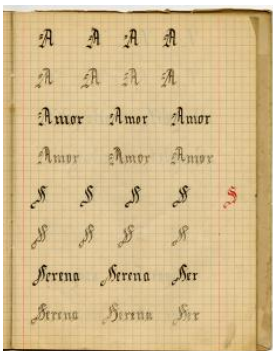 A A A A
A A A A
Amor Amor Amor
Amor Amor Amor
S S S S S
S S S S
Serena Serena Ser
Serena Serena Ser